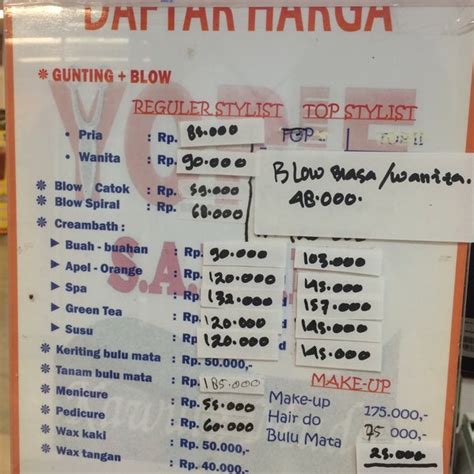 DAFTAR HARGA
* GUNTING + BLOW
REGULER STYLIST TOP STYLIST
• Pria : Rp. 85.000 TOP I TOP II
• Wanita : Rp. 90.000
Blow biasa/wanita.
48.000.
* Blow Catok : Rp. 59.000
* Blow Spiral : Rp. 68.000
* Creambath :
➤ Buah - buahan : Rp. 90.000 103.000
➤ Apel - Orange : Rp. 120.000 145.000
➤ Spa : Rp. 132.000 157.000
➤ Green Tea : Rp. 120.000 145.000
➤ Susu : Rp. 120.000 145.000
* Keriting bulu mata : Rp. 50.000,-
* Tanam bulu mata : Rp. 185.000
MAKE-UP
* Menicure : Rp. 55.000 Make-up 275.000,-
* Pedicure : Rp. 60.000 Hair do 75 000,-
* Wax kaki : Rp. 50.000,- Bulu Mata 25.000
* Wax tangan : Rp. 40.000,-